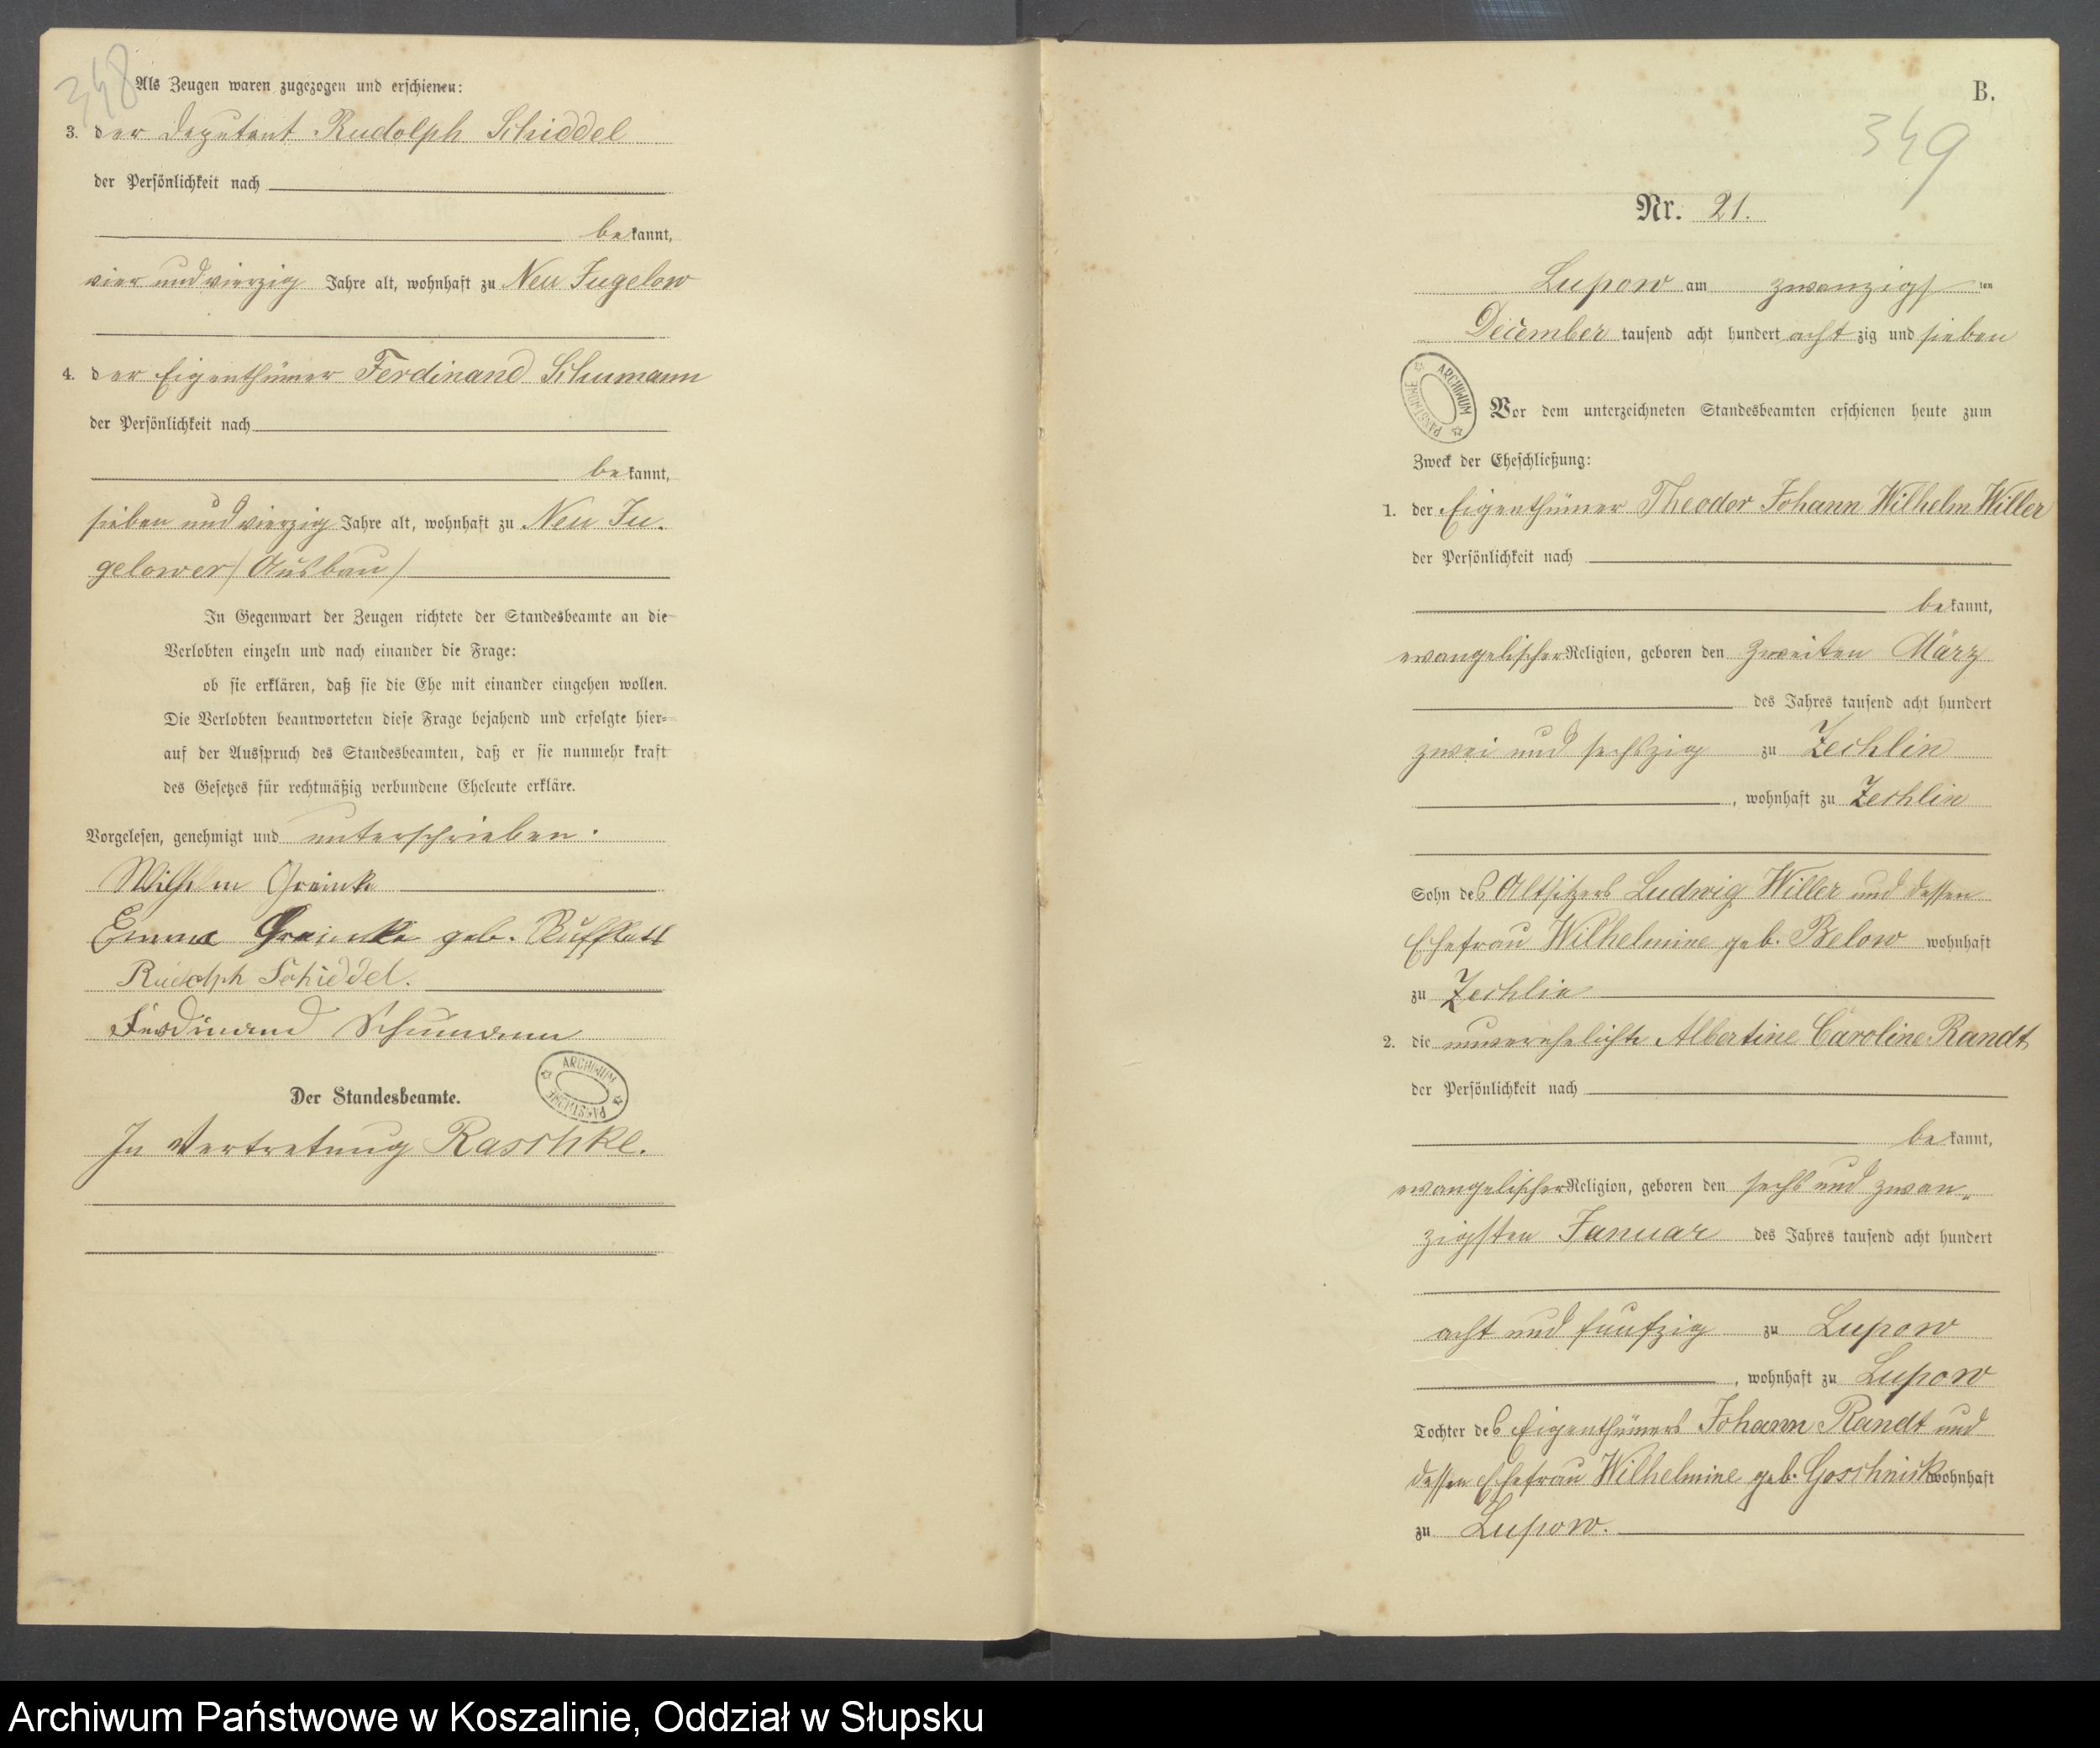 348
Als Zeugen waren zugezogen und erschienen:
3. der Deputant Rudolph Schiddel
der Persönlichkeit nach
bekannt,
vier und vierzig Jahre alt, wohnhaft zu Neu Jugelow
4. der Eigenthümer Ferdinand Schumann
der Persönlichkeit nach
bekannt,
sieben und vierzig Jahre alt, wohnhaft zu Neu Ju.
gelower (Ausbau)
In Gegenwart der Zeugen richtete der Standesbeamte an die
Verlobten einzeln und nach einander die Frage:
ob sie erklären, daß sie die Ehe mit einander eingehen wollen.
Die Verlobten beantworteten diese Frage bejahend und erfolgte hier=
auf der Ausspruch des Standesbeamten, daß er sie nunmehr kraft
des Gesetzes für rechtmäßig verbundene Eheleute erkläre.
Vorgelesen, genehmigt und unterschrieben.
Wilhelm Greinke
Emma Greinke geb.
Rudolph Schiddel.
Ferdinand Schumann
ARCHIWUM PAŃSTWOWE
Der Standesbeamte.
In Vertretung Raschke.
B.
349
Nr. 21.
Lupow am zwanzigsten
December tausend acht hundert achtzig und sieben
ARCHIWUM PAŃSTWOWE
Vor dem unterzeichneten Standesbeamten erschienen heute zum
Zweck der Eheschließung:
1. der Eigenthümer Theodor Johann Wilhelm Willer
der Persönlichkeit nach
bekannt,
evangelischer Religion, geboren den zweiten März
des Jahres tausend acht hundert
zwei und sechszig zu Zechlin
, wohnhaft zu Zechlin
Sohn des Altsitzers Ludwig Willer und dessen
Ehefrau Wilhelmine geb. Below wohnhaft
zu Zechlin
2. die unverehelichte Albertine Caroline Randt
der Persönlichkeit nach
bekannt,
evangelischer Religion, geboren den sechs und zwan„
zigsten Januar des Jahres tausend acht hundert
acht und fünfzig zu Lupow
, wohnhaft zu Lupow
Tochter des Eigenthümers Johann Randt und
dessen Ehefrau Wilhelmine geb. Goschnick wohnhaft
zu Lupow.
Archiwum Państwowe w Koszalinie, Oddział w Słupsku